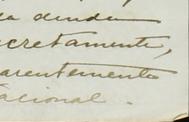 a dendem
cretamente,
arentemente
acional.